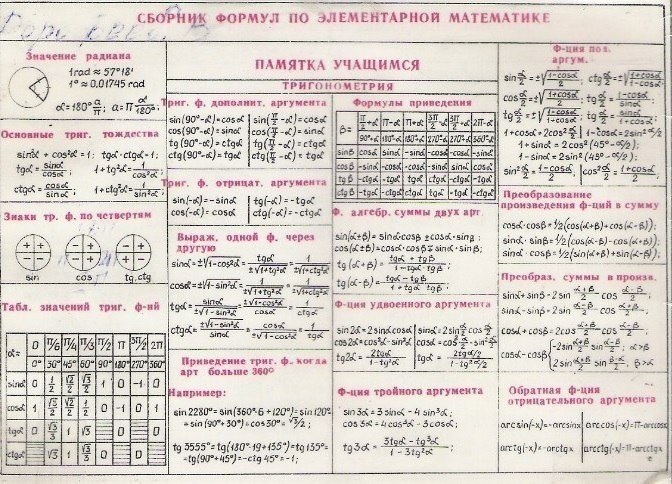 СБОРНИК ФОРМУЛ ПО ЭЛЕМЕНТАРНОЙ МАТЕМАТИКЕ
ПАМЯТКА УЧАЩИМСЯ
ТРИГОНОМЕТРИЯ
Значение радиана
1rad ≈ 57°18'
1° ≈ 0,01745 rad
α=180° a/π; a=π α/180°;
Основные триг. тождества
sin²α + cos²α = 1; tgα·ctgα=1;
tgα = sinα/cosα; 1+tg²α = 1/cos²α;
ctgα = cosα/sinα; 1+ctg²α = 1/sin²α;
Знаки тр. ф. по четвертям
+ + - - - + + - - + + -
sin cos tg, ctg
Табл. значений триг. ф-ий
α= 0 π/6 π/4 π/3 π/2 π 3π/2 2π
0° 30° 45° 60° 90° 180° 270° 360°
sinα 0 1/2 √2/2 √3/2 1 0 -1 0
cosα 1 √3/2 √2/2 1/2 0 -1 0 1
tgα 0 √3/3 1 √3 0 0
ctgα √3 1 √3/3 0 0
Триг. ф. дополнит. аргумента
sin(90°-α)=cosα sin(π/2-α)=cosα
cos(90°-α)=sinα cos(π/2-α)=sinα
tg(90°-α)=ctgα tg(π/2-α)=ctgα
ctg(90°-α)=tgα ctg(π/2-α)=tgα
Триг. ф. отрицат. аргумента
sin(-α)=-sinα tg(-α)=-tgα
cos(-α)=cosα ctg(-α)=-ctgα
Выраж. одной ф. через
другую
sinα=±√1-cos²α = tgα/±√1+tg²α = 1/±√1+ctg²α
cosα=±√1-sin²α = 1/±√1+tg²α = ctgα/±√1+ctg²α
tgα = sinα/±√1-sin²α = ±√1-cos²α/cosα = 1/ctgα
ctgα = ±√1-sin²α/sinα = cosα/±√1-cos²α = 1/tgα
Приведение триг ф. когда
арг больше 360°
Например:
sin 2280°= sin(360°·6+120°)=sin120°
=sin(90°+30°)=cos30°= √3/2;
tg 3555°=tg(180°·19+135°)=tg135°=
=tg(90°+45°)=-ctg 45°=-1;
Формулы приведения
β= π/2+α π-α π+α 3π/2-α 3π/2+α 2π-α
90°+α 180°-α 180°+α 270°-α 270°+α 360°-α
sinβ cosα sinα -sinα -cosα -cosα -sinα
cosβ -sinα -cosα -cosα -sinα sinα cosα
tgβ -ctgα -tgα tgα ctgα -ctgα -tgα
ctgβ -tgα -ctgα ctgα tgα -tgα -ctgα
Ф. алгебр. суммы двух арг
sin(α±β)=sinα·cosβ ± cosα·sinβ;
cos(α±β)=cosα·cosβ ∓ sinα·sinβ;
tg(α+β) = tgα + tgβ/1-tgα·tgβ;
tg(α-β) = tgα - tgβ/1+tgα·tgβ;
Ф-ция удвоенного аргумента
sin2α=2sinα cosα; sinα=2sin α/2 cos α/2
cos2α=cos²α-sin²α; cosα=cos² α/2-sin² α/2
tg2α= 2tgα/1-tg²α; tgα= 2tgα/2/1-tg²α/2
Ф-ция тройного аргумента
sin 3α=3 sinα - 4 sin³α;
cos 3α=4 cos³α - 3 cosα;
tg 3α = 3tgα - tg³α/1-3tg²α;
Ф-ция пол.
аргум.
sin α/2=±√1-cosα/2; ctg α/2=±√1+cosα/1-cosα
cos α/2=±√1+cosα/2; tg α/2= 1-cosα/sinα
tg α/2=±√1-cosα/1+cosα; tg α/2= sinα/1+cosα
1+cosα=2cos² α/2 1-cosα=2sin² α/2
1+sinα=2cos²(45°-α/2);
1-sinα=2sin²(45°-α/2);
sin² α/2= 1-cosα/2 cos² α/2= 1+cosα/2
Преобразование
произведения ф-ций в сумму
cosα·cosβ=½(cos(α+β)+cos(α-β));
sinα·sinβ=½(cos(α-β)-cos(α+β));
sinα·cosβ=½(sin(α+β)+sin(α-β));
Преобраз. суммы в произв.
sinα+sinβ=2sin α+β/2 cos α-β/2
sinα-sinβ=2sin α-β/2 cos α+β/2
cosα+cosβ=2cos α+β/2 cos α-β/2
cosα-cosβ { -2sin α+β/2 sin α-β/2;
2sin α+β/2 sin β-α/2, β>α
Обратная ф-ция
отрицательного аргумента
arcsin(-x)=-arcsinx arccos(-x)=π-arccosx
arctg(-x)=-arctgx arcctg(-x)=π-arcctgx